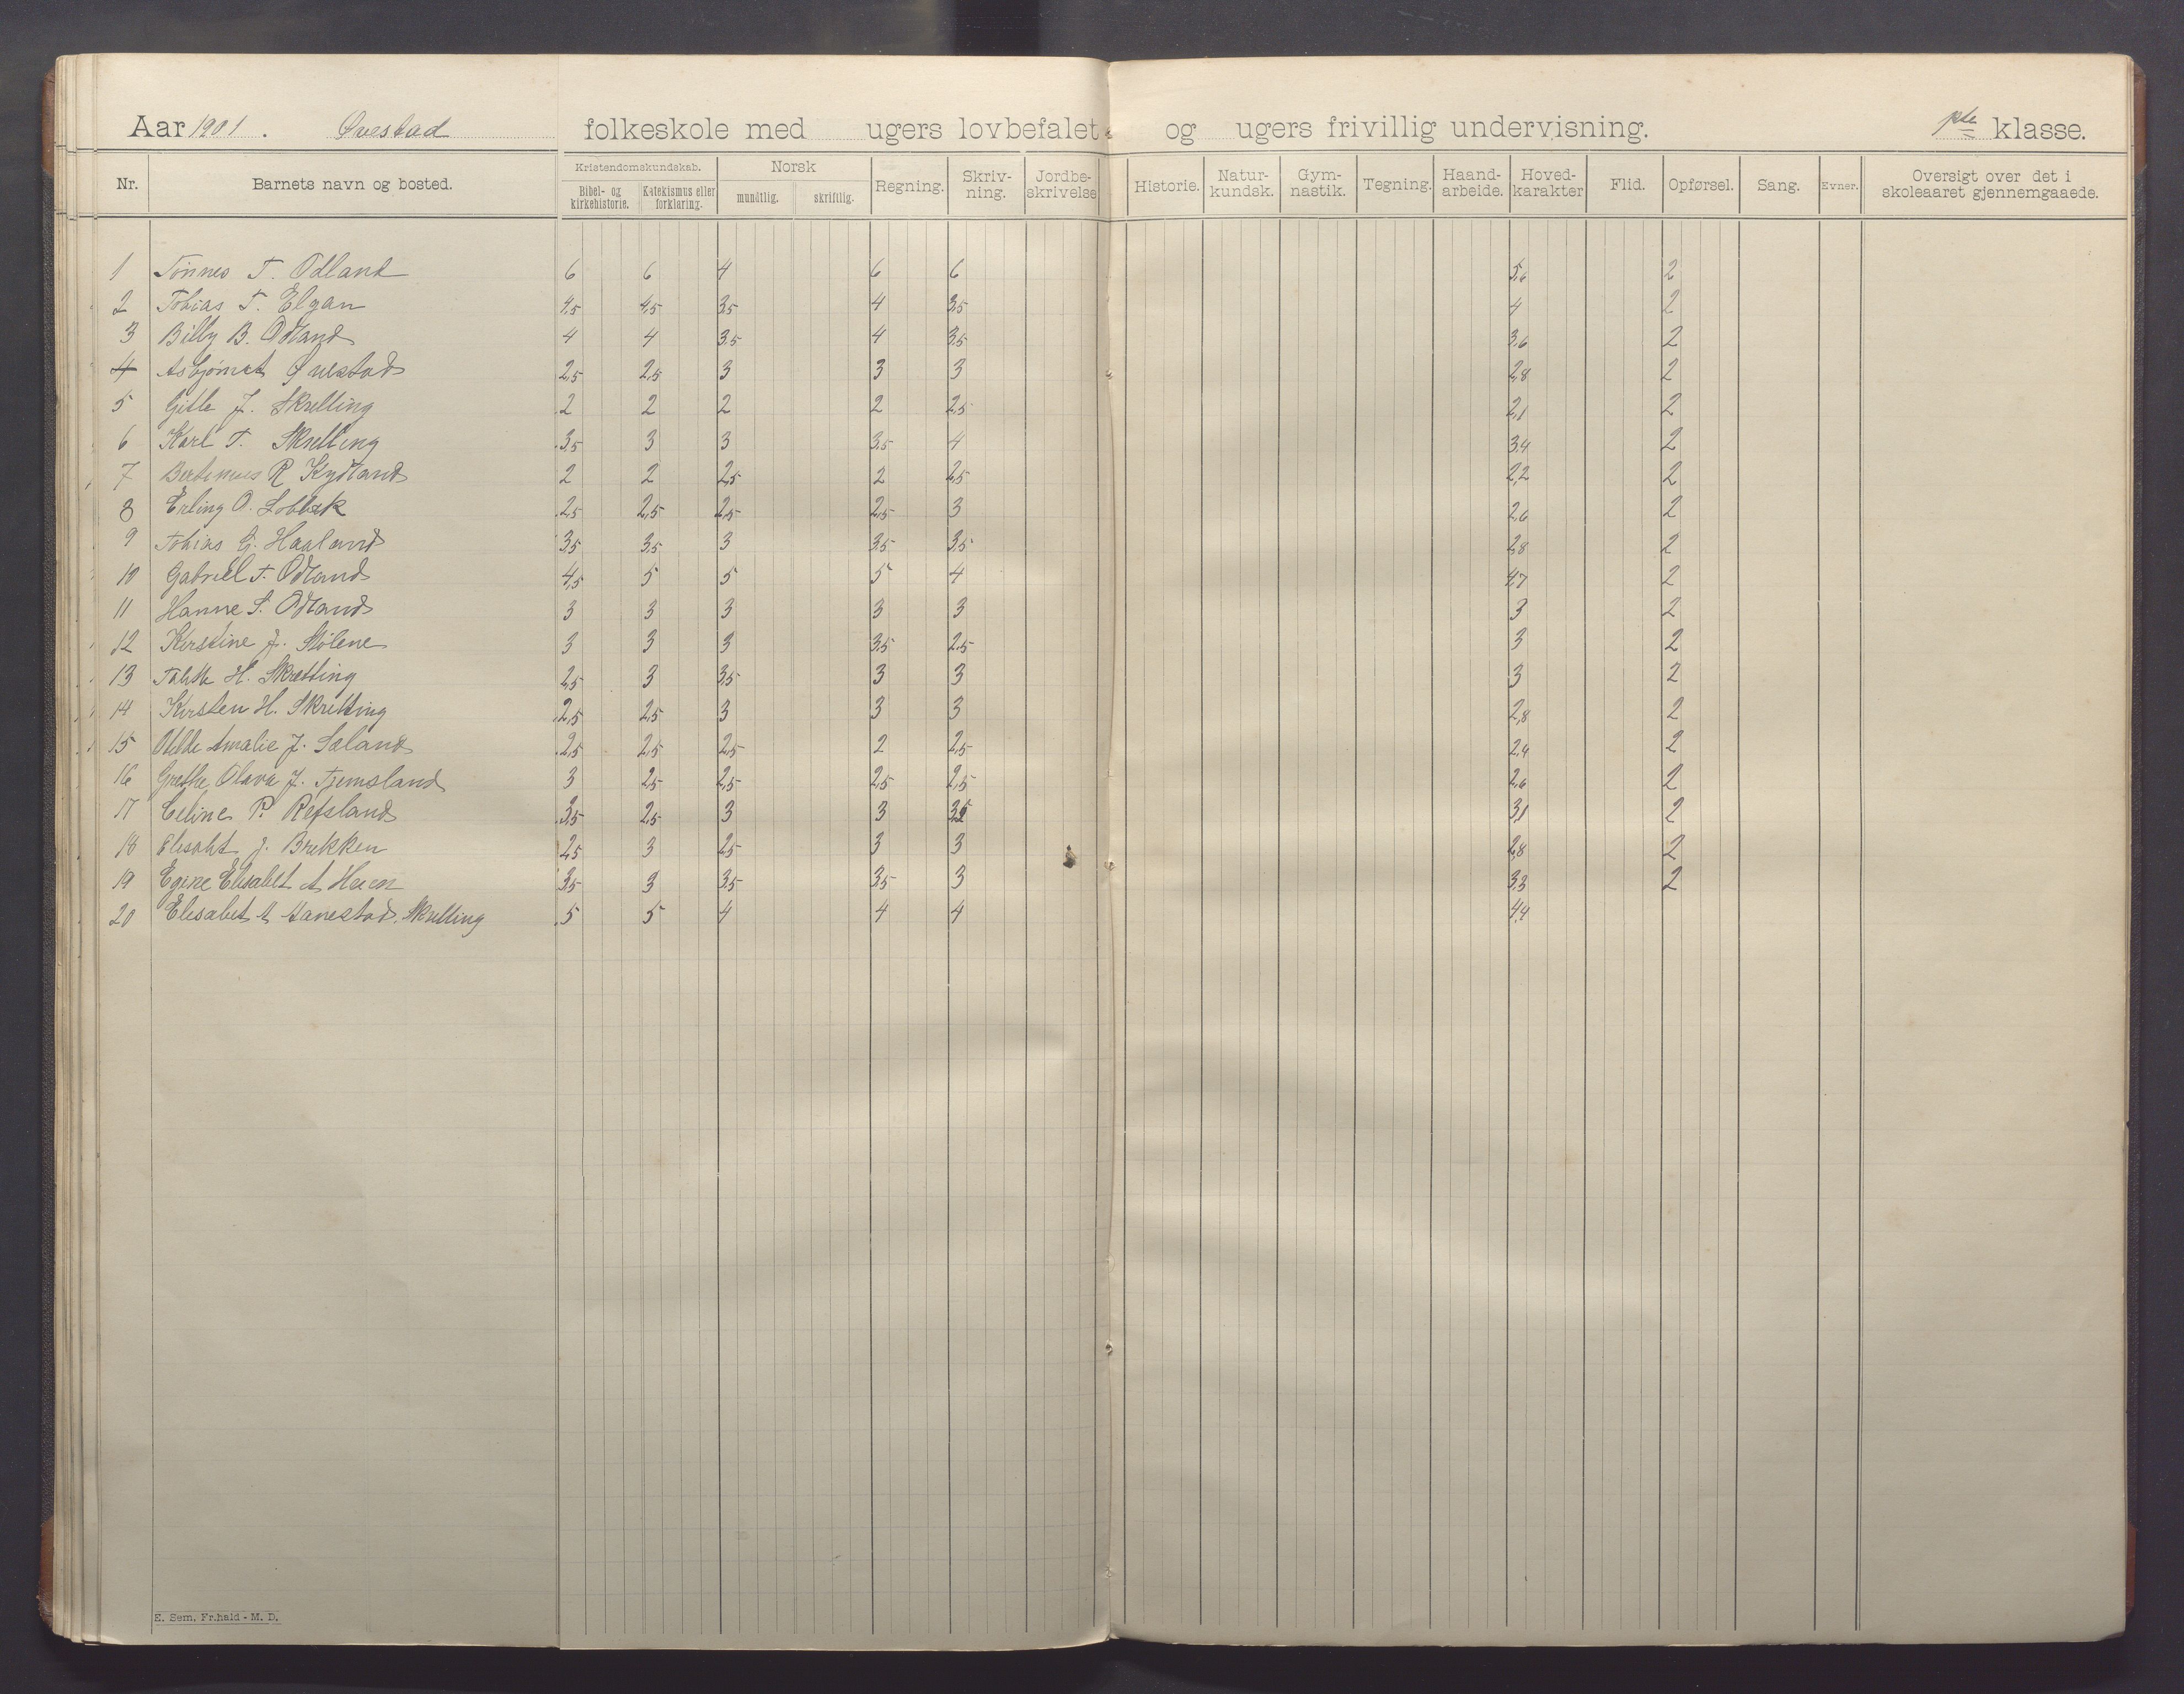 Aar 1901. Øvestad folkeskole med ugers lovbefalet og ugers frivillig undervisning. klasse.
Nr. Barnets navn og bosted. Kristendomskundskab. Bibel- og kirkehistorie. Katekismus eller forklaring. Norsk mundtlig. skriftlig. Regning. Skriv-ning. Jordbe-skrivelse Historie. Natur-kundsk. Gym-nastik. Tegning. Haand-arbeide. Hoved-karakter Flid. Opførsel. Sang. Evner. Oversigt over det i skoleaaret gjennemgaaede.
1 Tønnes T. Odland 6 6 4 6 6 5,6 2
2 Tobias T. Elgan 4,5 4,5 3,5 4 3,5 4 2
3 Billy B. Odland 4 4 3,5 4 3,5 3,6 2
4 Øvestad 2,5 2,5 3 3 3 2,8 2
5 Gitle J. Skretting 2 2 2 2 2,5 2,1 2
6 Karl T. Skretting 3,5 3 3 3,5 4 3,4 2
7 Bertinius R Kydland 2 2 2,5 2 2,5 2,2 2
8 Erling O. 2,5 2,5 2,5 2,5 3 2,6 2
9 Tobias G. Haaland 3,5 3,5 3 3,5 3,5 2,8 2
10 Gabriel T. Odland 4,5 5 5 5 4 4,7 2
11 Hanne S. Odland 3 3 3 3 3 3 2
12 Kirstine J. Stølene 3 3 3 3,5 2,5 3 2
13 H. Skretting 2,5 3 3,5 3 3 3 2
14 Kirsten H. Skretting 2,5 2,5 3 3 3 2,8 2
15 Amalie J. Sæland 2,5 2,5 2,5 2 2,5 2,4 2
16 Grethe Olava J. Tjemsland 3 2,5 2,5 2,5 2,5 2,6 2
17 Celine P. Refsland 3,5 2,5 3 3 3,5 3,1 2
18 Elisabt J. Brekken 2,5 3 2,5 3 3 2,8 2
19 Egine Elisabet A 3,5 3 3,5 3,5 3 3,3 2
20 Elisabet A Skretting 5 5 4 4 4 4,4
E. Sem, Fr.hald - M. D.